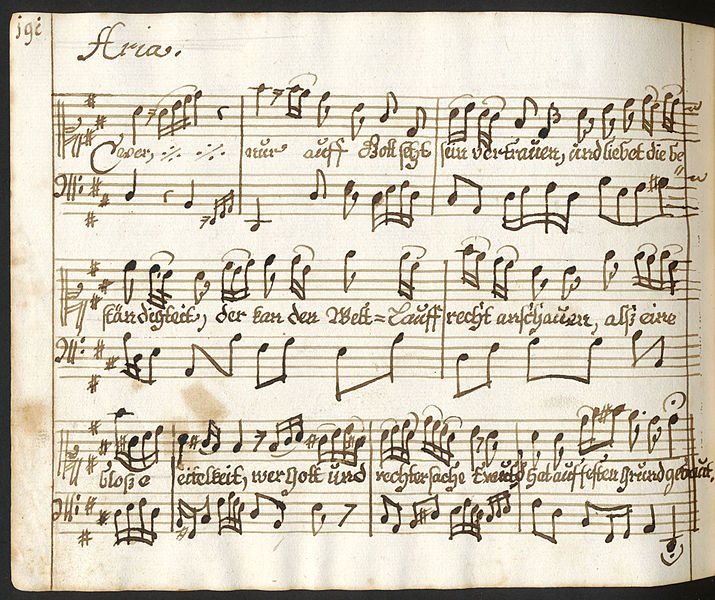 191
Aria.
wer, nur auff Gott setzt sein vertrauen, und liebet die be=
ständigkeit, der kan den Welt=Lauff recht anschauen, alsz eine
blosze eitelkeit, wer Gott und rechter sache traut, hat auff festen Grund gebaut,